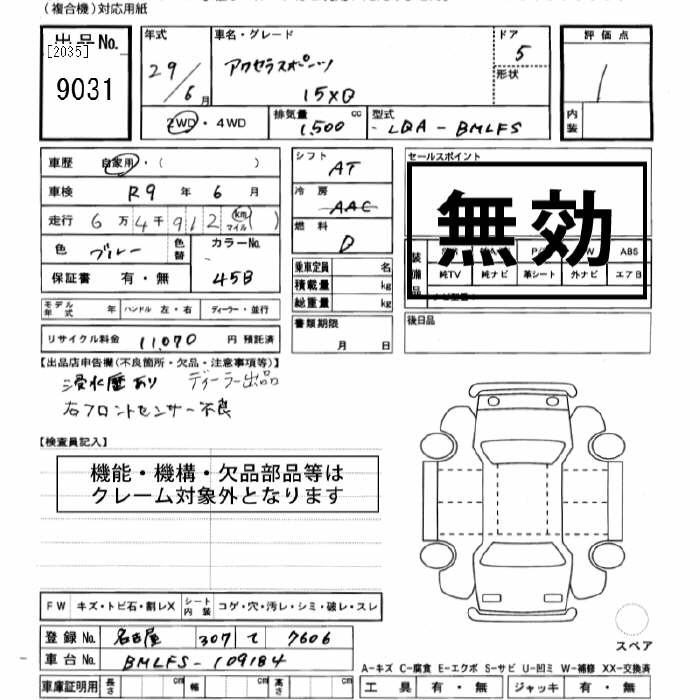 (複合機)対応用紙
出品No.
[2035]
9031
年式
29/6月
車名・グレード
アクセラスポーツ
15XD
ドア
5
形状
評価点
1
内装
2WD・4WD
排気量
1,500 cc
型式
-LDA-BMLFS
車歴 自家用・( )
車検 R9年 6月
走行 6万4千912 km マイル ( )
色 ブルー 色替 カラーNo. 45B
保証書 有・無
シフト AT
冷房 AAC
燃料 D
乗車定員 名
積載量 kg
総重量 kg
書類期限
月 日
セールスポイント
無効
装備品
ABS
純TV 純ナビ 革シート 外ナビ エアB
後日品
モデル年式 年 ハンドル 左・右 ディーラー・並行
リサイクル料金 11,070 円 預託済
【出品店申告欄(不良箇所・欠品・注意事項等)】
浸水歴あり ディーラー出品
右フロントセンサー不良
【検査員記入】
機能・機構・欠品部品等は
クレーム対象外となります
FW キズ・トビ石・割レX シート内装 コゲ・穴・汚レ・シミ・破レ・スレ
登録No. 名古屋 307 て 7606
車台No. BMLFS-109184
車庫証明用 長さ cm 幅 cm 高さ cm
スペア
A-キズ C-腐食 E-エクボ S-サビ U-凹ミ W-補修 XX-交換済
工具 有・無 ジャッキ 有・無